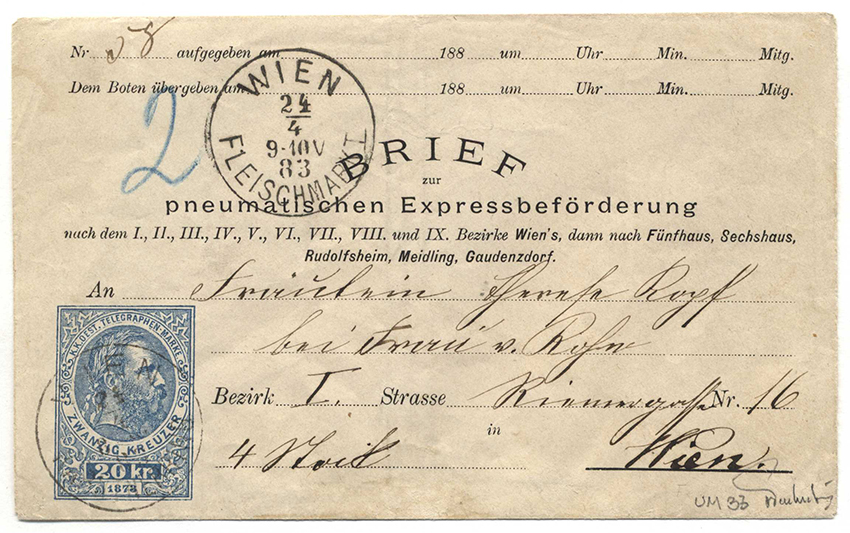 Nr 58 aufgegeben am 188 um Uhr Min. Mitg.
Dem Boten übergeben am 188 um Uhr Min. Mitg.
2
WIEN
24
4
9-10V
83
FLEISCHMARKT
BRIEF
zur
pneumatischen Expressbeförderung
nach dem I., II., III., IV., V., VI., VII., VIII. und IX. Bezirke Wien's, dann nach Fünfhaus, Sechshaus,
Rudolfsheim, Meidling, Gaudenzdorf.
An Fräulein Therese Kopf
bei Frau v. Rohn
Bezirk I. Strasse Riemergasse Nr. 16
4 Stock in Wien.
K.K. OEST. TELEGRAPHEN-MARKE
ZWANZIG KREUZER
20 kr.
1873
UM 33